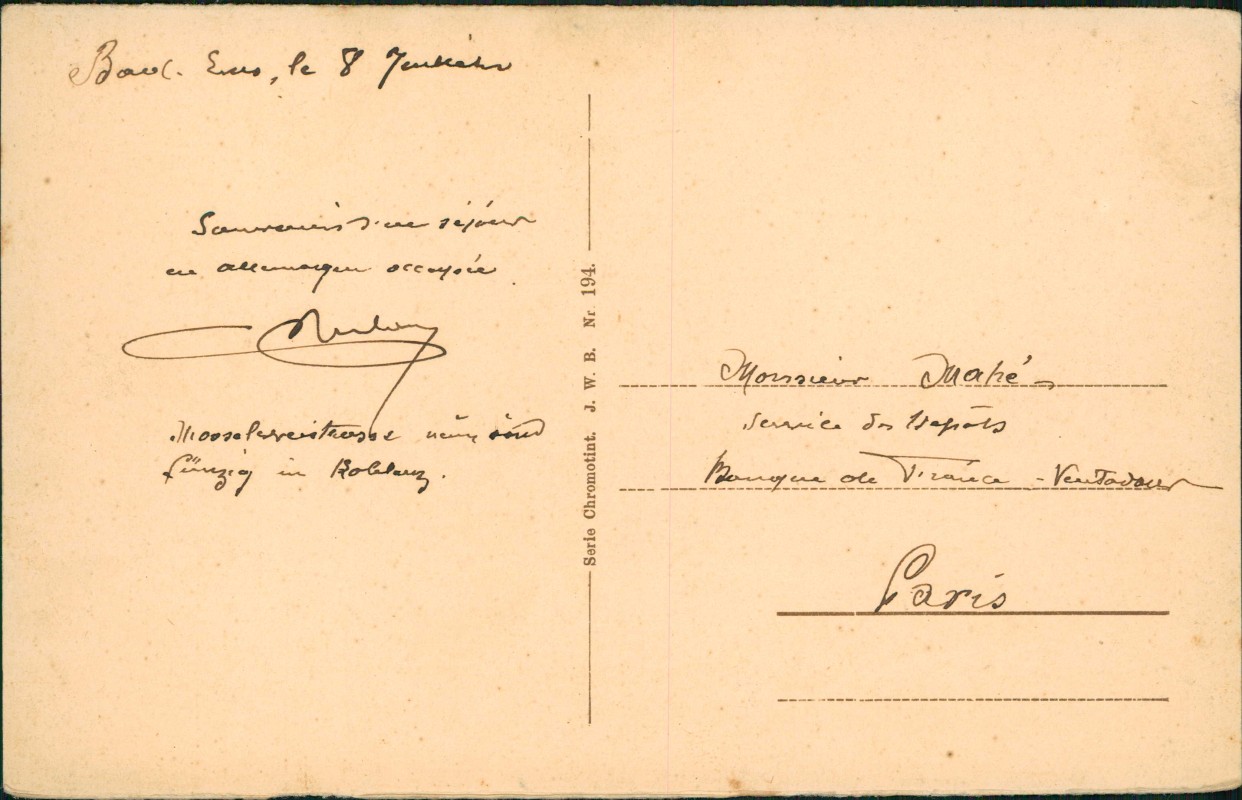 Bad. Ems, le 8 Janvier
Souvenirs d'un séjour
en allemagne occupée
Moselweistrasse neün ünd
fünzig in Koblenz.
Serie Chromotint. J. W. B. Nr. 194.
Monsieur Mahé
Service des Dépôts
Banque de France - Ventadour
Paris